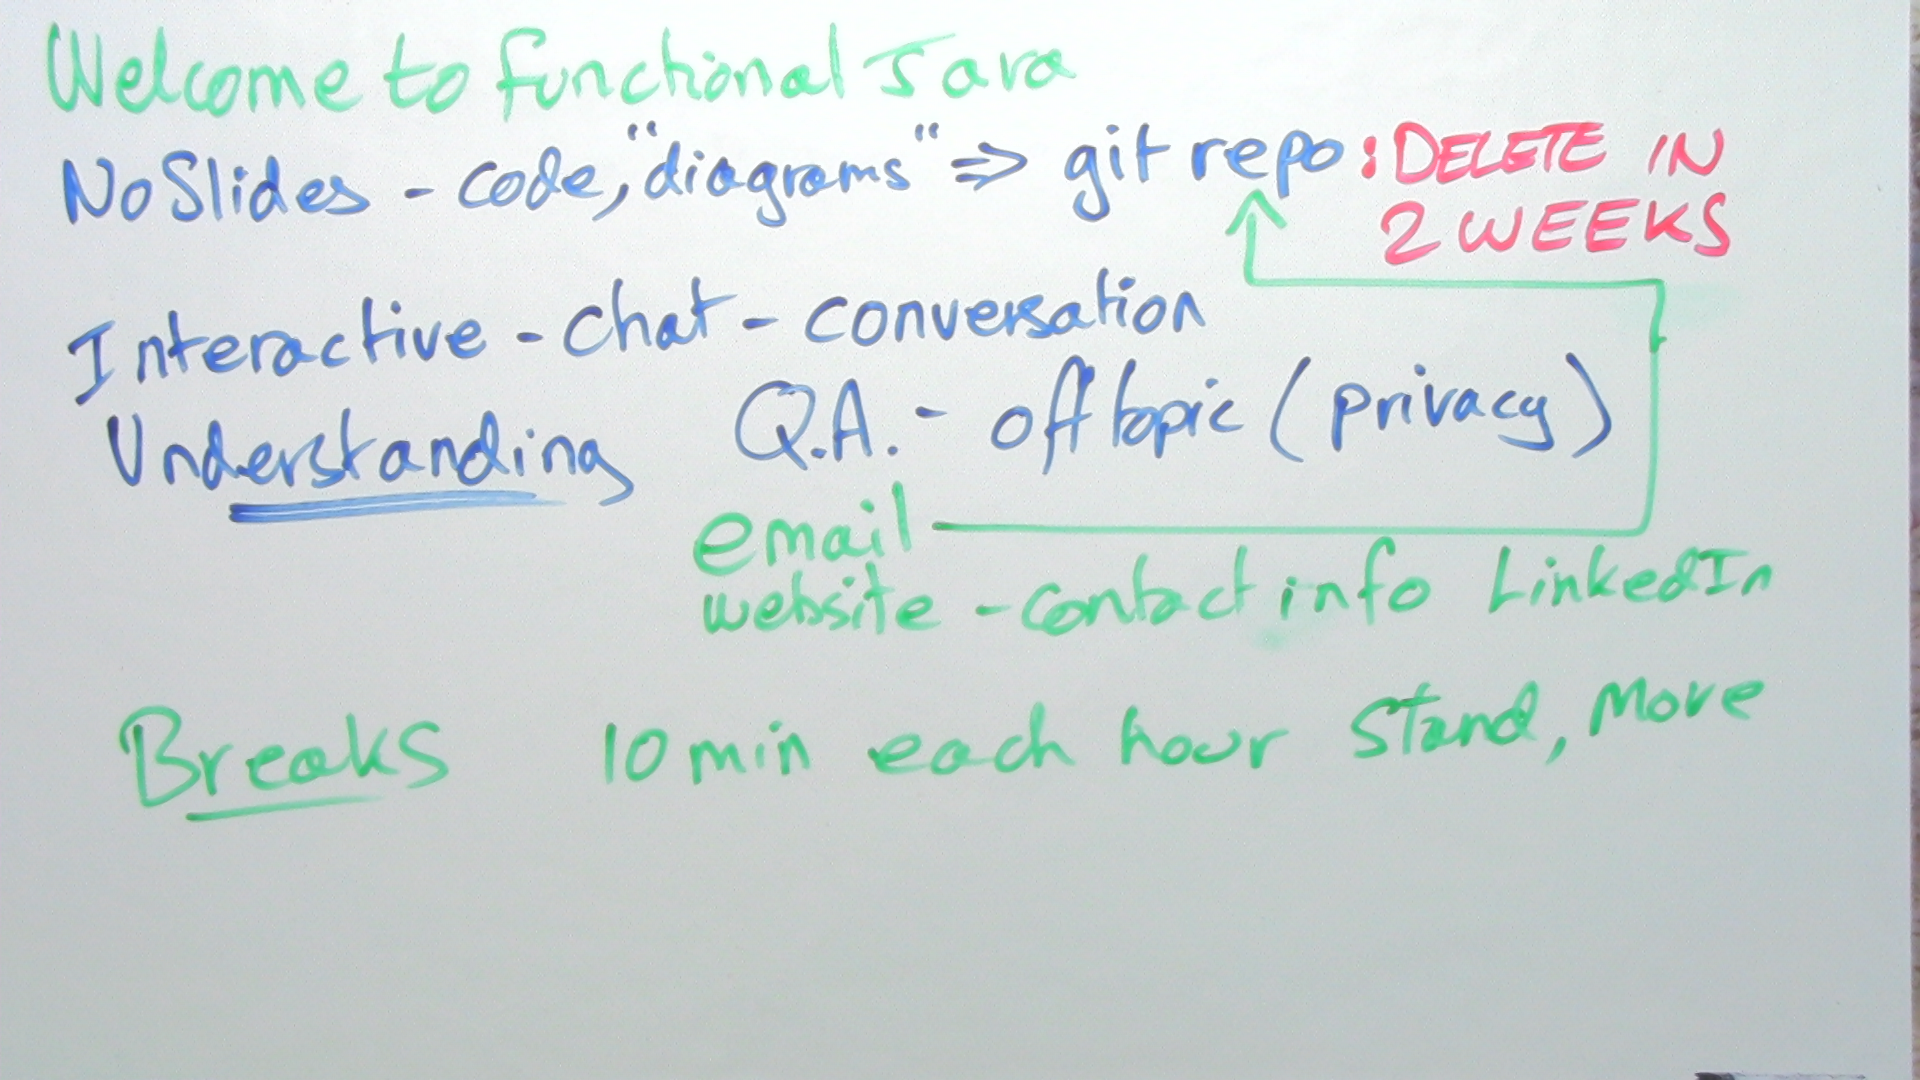 Welcome to functional Java
No Slides - code, "diagrams" => git repo : DELETE IN
2 WEEKS
Interactive - chat - conversation
Understanding Q.A. - off topic (privacy)
email
website - contact info LinkedIn
Breaks 10 min each hour Stand, Move